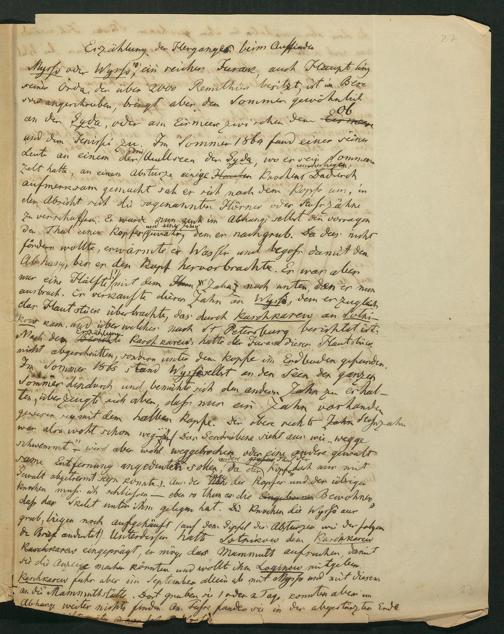 27
Erzählung des Herganges beim Auffinden
Myrßo oder Wyrßo, ein reicher Jurak, auch Häuptling
seiner Orda, der über 2000 Rennthiere besitzt, ist in Bere-
sow angeschrieben, bringt aber den Sommer gewöhnlich
Ob
an der Gyda, oder am Eismeer zwischen dem
und dem Jenissei zu. Im Sommer 1864 fand einer seiner
Leute an einem der Quellseen der Gyda, wo er sein Sommer
zelt hatte, an einem Absturze einige Knochen. Dadurch
aufmerksam gemacht sah er sich nach dem Kopfe um, in
der Absicht sich die sogenannten Hörner oder Stoßzähne
zu verschaffen. Es wurde im Abhang selbst ein vorragen
der Theil eines Kopfes gewahr, dem er nachgrub. Da dies nicht
fördern wollte, erwärmte er Wasser und begoß damit den
Abhang, bis er den Kopf hervorbrachte. Er war aber
nur eine Hälfte mit dem Zahn nach unten, den er nun
ausbrach. Er verkaufte diesen Zahn an Wyrßo, dem er zugleich
das Hautstück überbrachte, das durch Kaschkarew an Sotni-
kow kam und über welches nach St Petersburg berichtet ist.
Erzählung
Nach dem Kaschkarews hatte der Jurak dieses Hautstück
nicht abgeschnitten, sondern unter dem Kopfe im Erdboden gefunden.
Im Sommer 1865 stand Wyrßo selbst an den Seen den ganzen
Sommer hindurch und bemühte sich den andern Zahn zu erhal-
ten, überzeugte sich aber, daß nur ein Zahn vorhanden
gewesen sei mit dem halben Kopfe. Der obere rechte Stoßzahn
war also wohl schon
schwemmt - wird aber wohl weggebrochen oder eine andere gewalt
same Entfernung angedeutet sollen, da der Kopf nur mit
Gewalt abgetrennt sein konnte. Aus der des Kopfes und der übrigen
Knochen muß ich schließen
daß das Skelet unter ihm gelegen hat. Die Knochen die Wyrßo aus
grub, liegen noch aufgehäuft (auf dem Gipfel des Absturzes wie der folgen
de Brief andeutet). Unterdessen hatte Sotnikow dem Kaschkarew
eingeprägt, er möge das Mammuth aufsuchen, damit
sie die Anzeige machen könnten und wollte ihm Loginow mitgeben.
Kaschkarew fuhr aber im September allein ab mit Myrßo und mit diesem
an die Mammuthstelle. Dort gruben sie 1 oder 2 Tage, konnten aber im
Abhang weiter nichts finden. Am Fuße fanden sie in der abgestürzten Erde